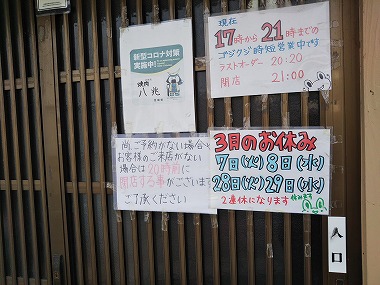 新型コロナ対策
実施中!
焼肉
八兆
現在
17時から21時までの
ゴジクジ時短営業中です
ラストオーダー 20:20
閉店 21:00
尚、ご予約がない場合と
お客様のご来店がない
場合は20時前に
閉店する事がございます
ご了承ください
3月のお休み
7日(火)8日(水)
28日(火)29日(水)
2連休になります
入口